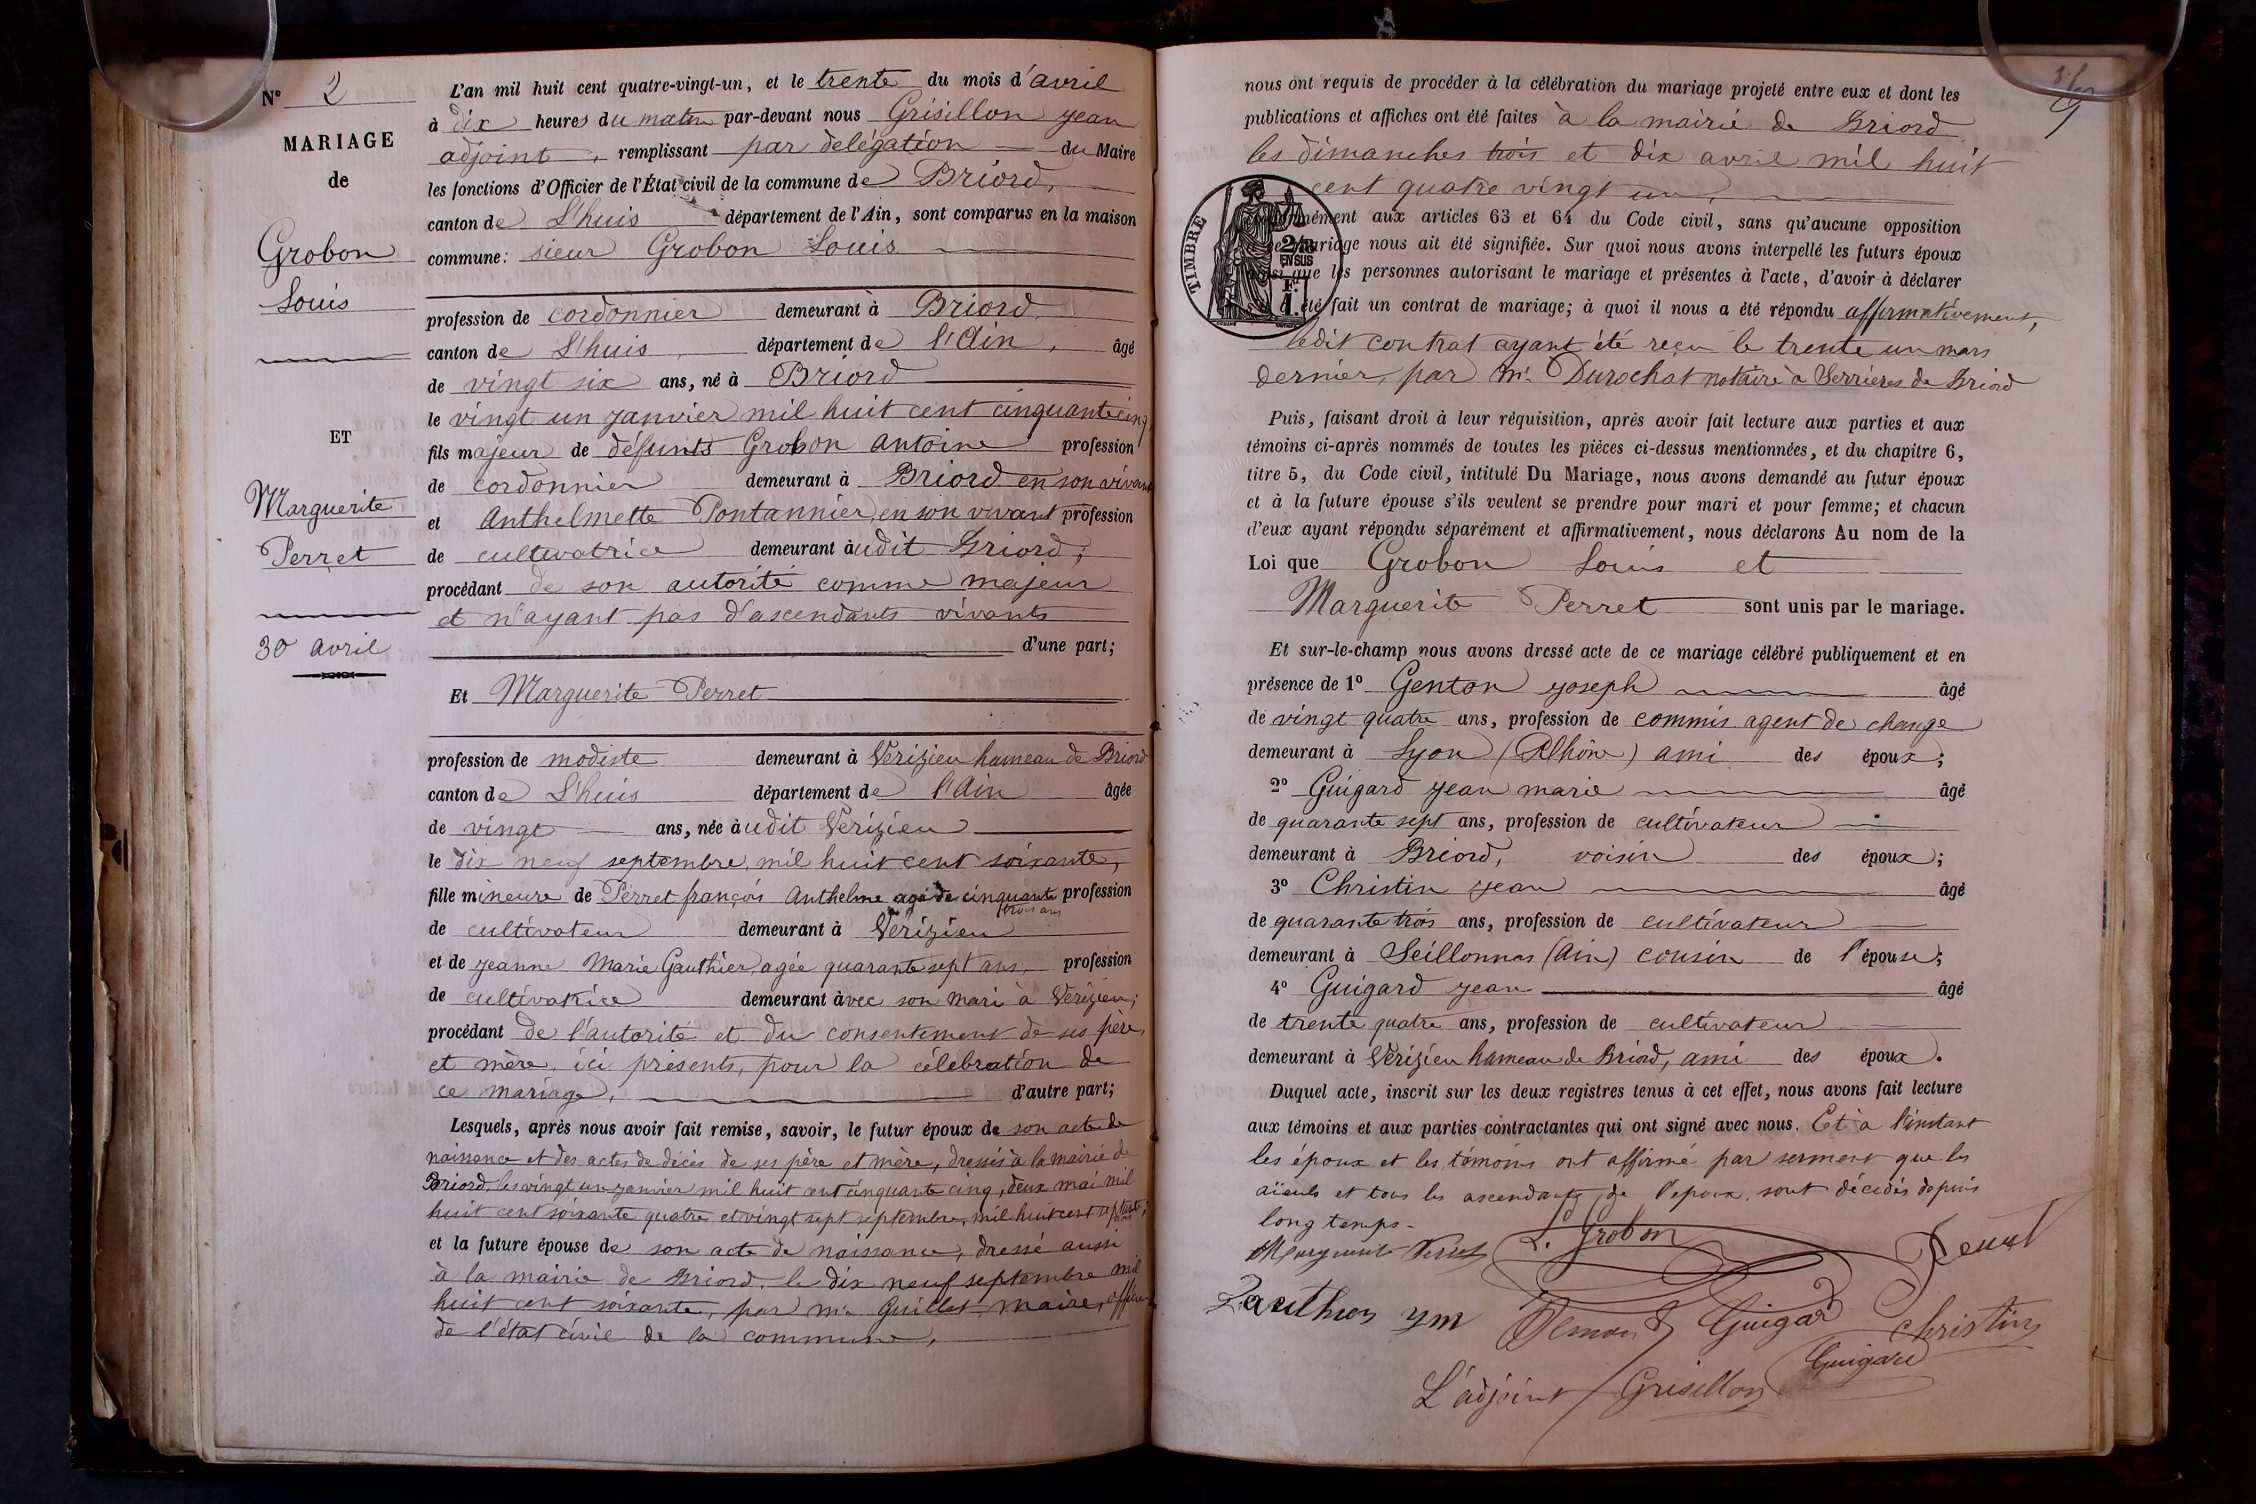 N° 2
MARIAGE
de
Grobon
Louis
ET
Marguerite
Perret
30 avril
L'an mil huit cent quatre-vingt-un, et le trente du mois d'avril
à dix heures du matin par-devant nous Grisillon jean
adjoint, remplissant par délégation du Maire
les fonctions d'Officier de l'État civil de la commune de Briord,
canton de L'huis département de l'Ain, sont comparus en la maison
commune: sieur Grobon Louis
profession de cordonnier demeurant à Briord
canton de L'huis, département de l'Ain, âgé
de vingt six ans, né à Briord
le vingt un janvier mil huit cent cinquante cinq,
fils majeur de défunts Grobon antoine profession
de cordonnier demeurant à Briord en son vivant
et Anthelmette Pontannier, en son vivant profession
de cultivatrice demeurant àudit Briord,
procédant de son autorité comme majeur
et n'ayant pas d'ascendants vivants
d'une part;
Et Marguerite Perret
profession de modiste demeurant à Verizieu hameau de Briord
canton de L'huis département de l'Ain âgée
de vingt ans, née àudit Verizieu
le dix neuf septembre mil huit cent soixante,
fille mineure de Perret françois Anthelme agé de cinquante profession
trois ans
de cultivateur demeurant à Verizieu
et de jeanne Marie Gauthier, agée quarante sept ans, profession
de cultivatrice demeurant àvec son mari à Verizieu;
procédant de l'autorité et du consentement de ses père,
et mère, ici présents, pour la célébration de
ce mariage, d'autre part;
Lesquels, après nous avoir fait remise, savoir, le futur époux de son acte de
naissance et des actes de décès de ses père et mère, dressés à la mairie de
Briord, les vingt un janvier mil huit cent cinquante cinq, deux mai mil
huit cent soixante quatre et vingt sept septembre, mil huit cent
et la future épouse de son acte de naissance, dressé aussi
à la mairie de Briord, le dix neuf septembre mil
huit cent soixante, par Mr Guillet maire, officier
de l'état civil de la commune,
nous ont requis de procéder à la célébration du mariage projeté entre eux et dont les
publications et affiches ont été faites à la mairie de Briord
les dimanches trois et dix avril mil huit
cent quatre vingt un,
TIMBRE
2/10
EN SUS
1 Fr.
conformément aux articles 63 et 64 du Code civil, sans qu'aucune opposition
ce mariage nous ait été signifiée. Sur quoi nous avons interpellé les futurs époux
ainsi que les personnes autorisant le mariage et présentes à l'acte, d'avoir à déclarer
été fait un contrat de mariage; à quoi il nous a été répondu affirmativement,
ledit contrat ayant été reçu le trente un mars
dernier, par Mr Durochat notaire à Serrières de Briord
Puis, faisant droit à leur réquisition, après avoir fait lecture aux parties et aux
témoins ci-après nommés de toutes les pièces ci-dessus mentionnées, et du chapitre 6,
titre 5, du Code civil, intitulé Du Mariage, nous avons demandé au futur époux
et à la future épouse s'ils veulent se prendre pour mari et pour femme; et chacun
d'eux ayant répondu séparément et affirmativement, nous déclarons Au nom de la
Loi que Grobon Louis et
Marguerite Perret sont unis par le mariage.
Et sur-le-champ nous avons dressé acte de ce mariage célébré publiquement et en
présence de 1° Genton joseph âgé
de vingt quatre ans, profession de commis agent de change
demeurant à Lyon (Rhône) ami des époux;
2° Guigard jean marie âgé
de quarante sept ans, profession de cultivateur
demeurant à Briord, voisin des époux;
3° Christin jean âgé
de quarante trois ans, profession de cultivateur
demeurant à Seillonnas (Ain) cousin de l'épouse;
4° Guigard jean âgé
de trente quatre ans, profession de cultivateur
demeurant à Verizieu hameau de Briord, ami des époux.
Duquel acte, inscrit sur les deux registres tenus à cet effet, nous avons fait lecture
aux témoins et aux parties contractantes qui ont signé avec nous. Et à l'instant
les époux et les témoins ont affirmé par serment que les
aïeuls et tous les ascendants de l'époux, sont décédés depuis
long temps.
Marguerite Perret L. Grobon Perret
Gauthier jm Guigard Christin
Guigard
L'adjoint Grisillon